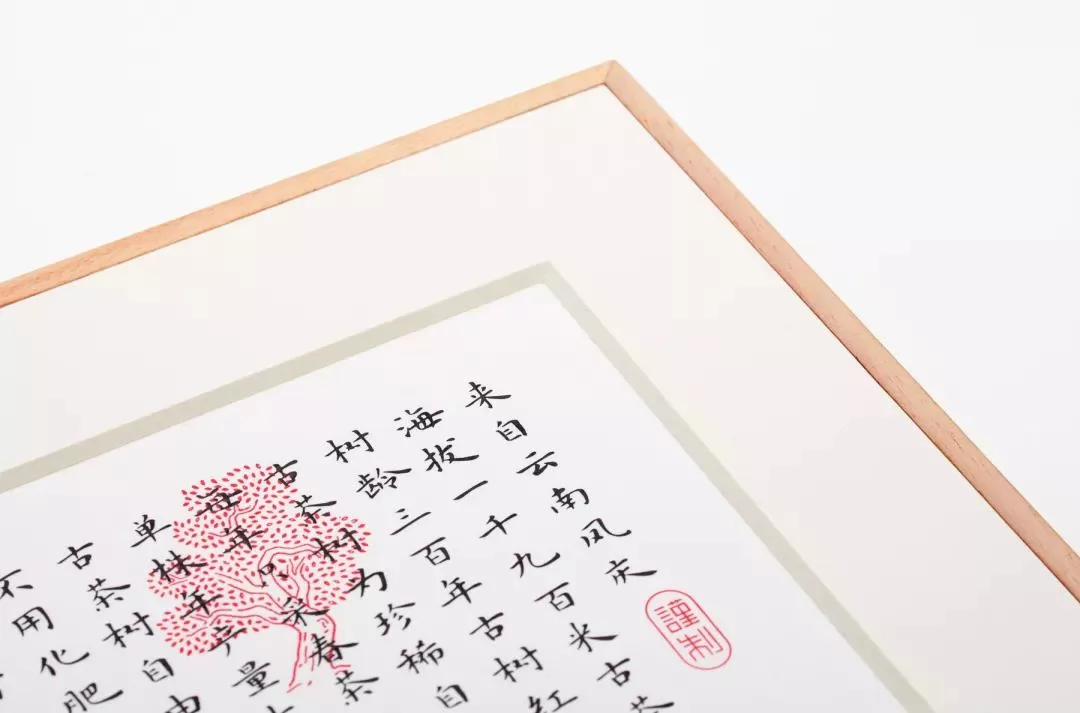 来自云南凤庆
海拔一千九百米古茶
树龄三百年古树红
古茶树为珍稀自
每年只采春茶
单株年产量
古茶树自由
不用化肥
謹制